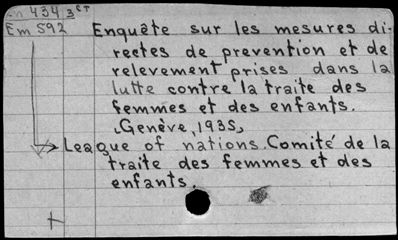 434 3 CT
Em 592
Enquête sur les mesures di-
rectes de prevention et de
relevement prises dans la
lutte contre la traite des
femmes et des enfants.
Genève, 1935,
League of nations. Comité de la
traite des femmes et des
enfants.